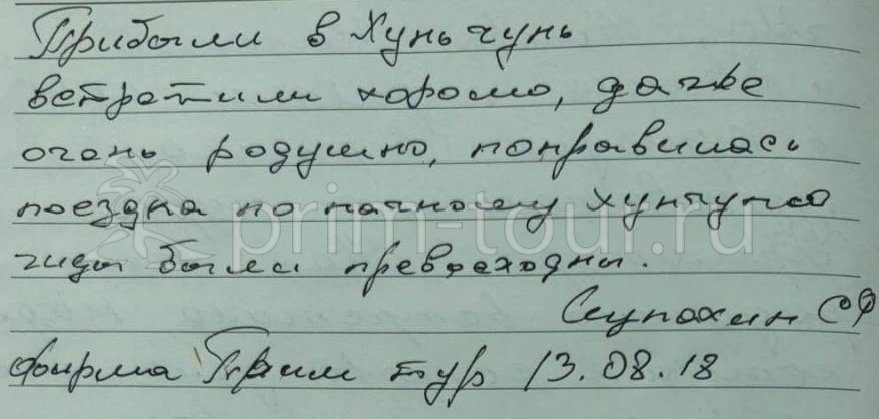 Прибыли в Хуньчунь
встретили хорошо, даже
очень радушно, понравилась
поездка по ночному Хунчуню
гиды были превосходны.
СФ
фирма Прим тур 13.08.18
prim-tour.ru